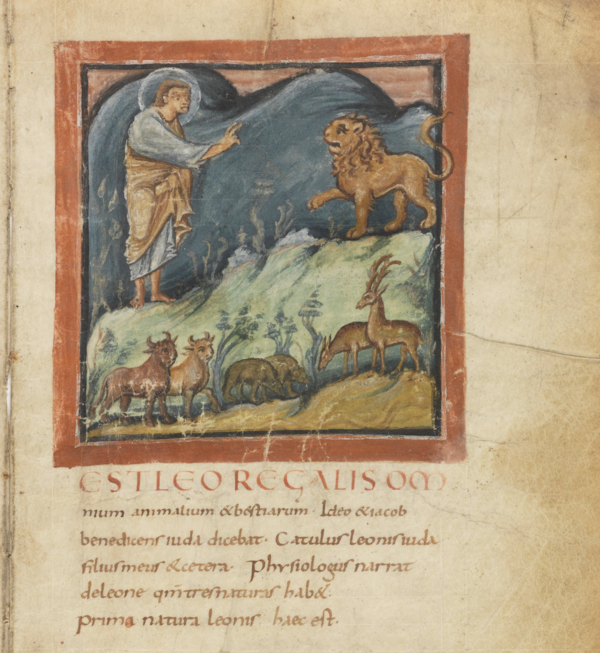 EST LEO REGALIS OM
nium animalium &bestiarum· Ideo &iacob
benedicens iuda dicebat· Catulus leonis iuda
filius meus &cetera· Physiologus narrat
de leone qm̅ tres naturas hab&·
prima natura leonis haec est·